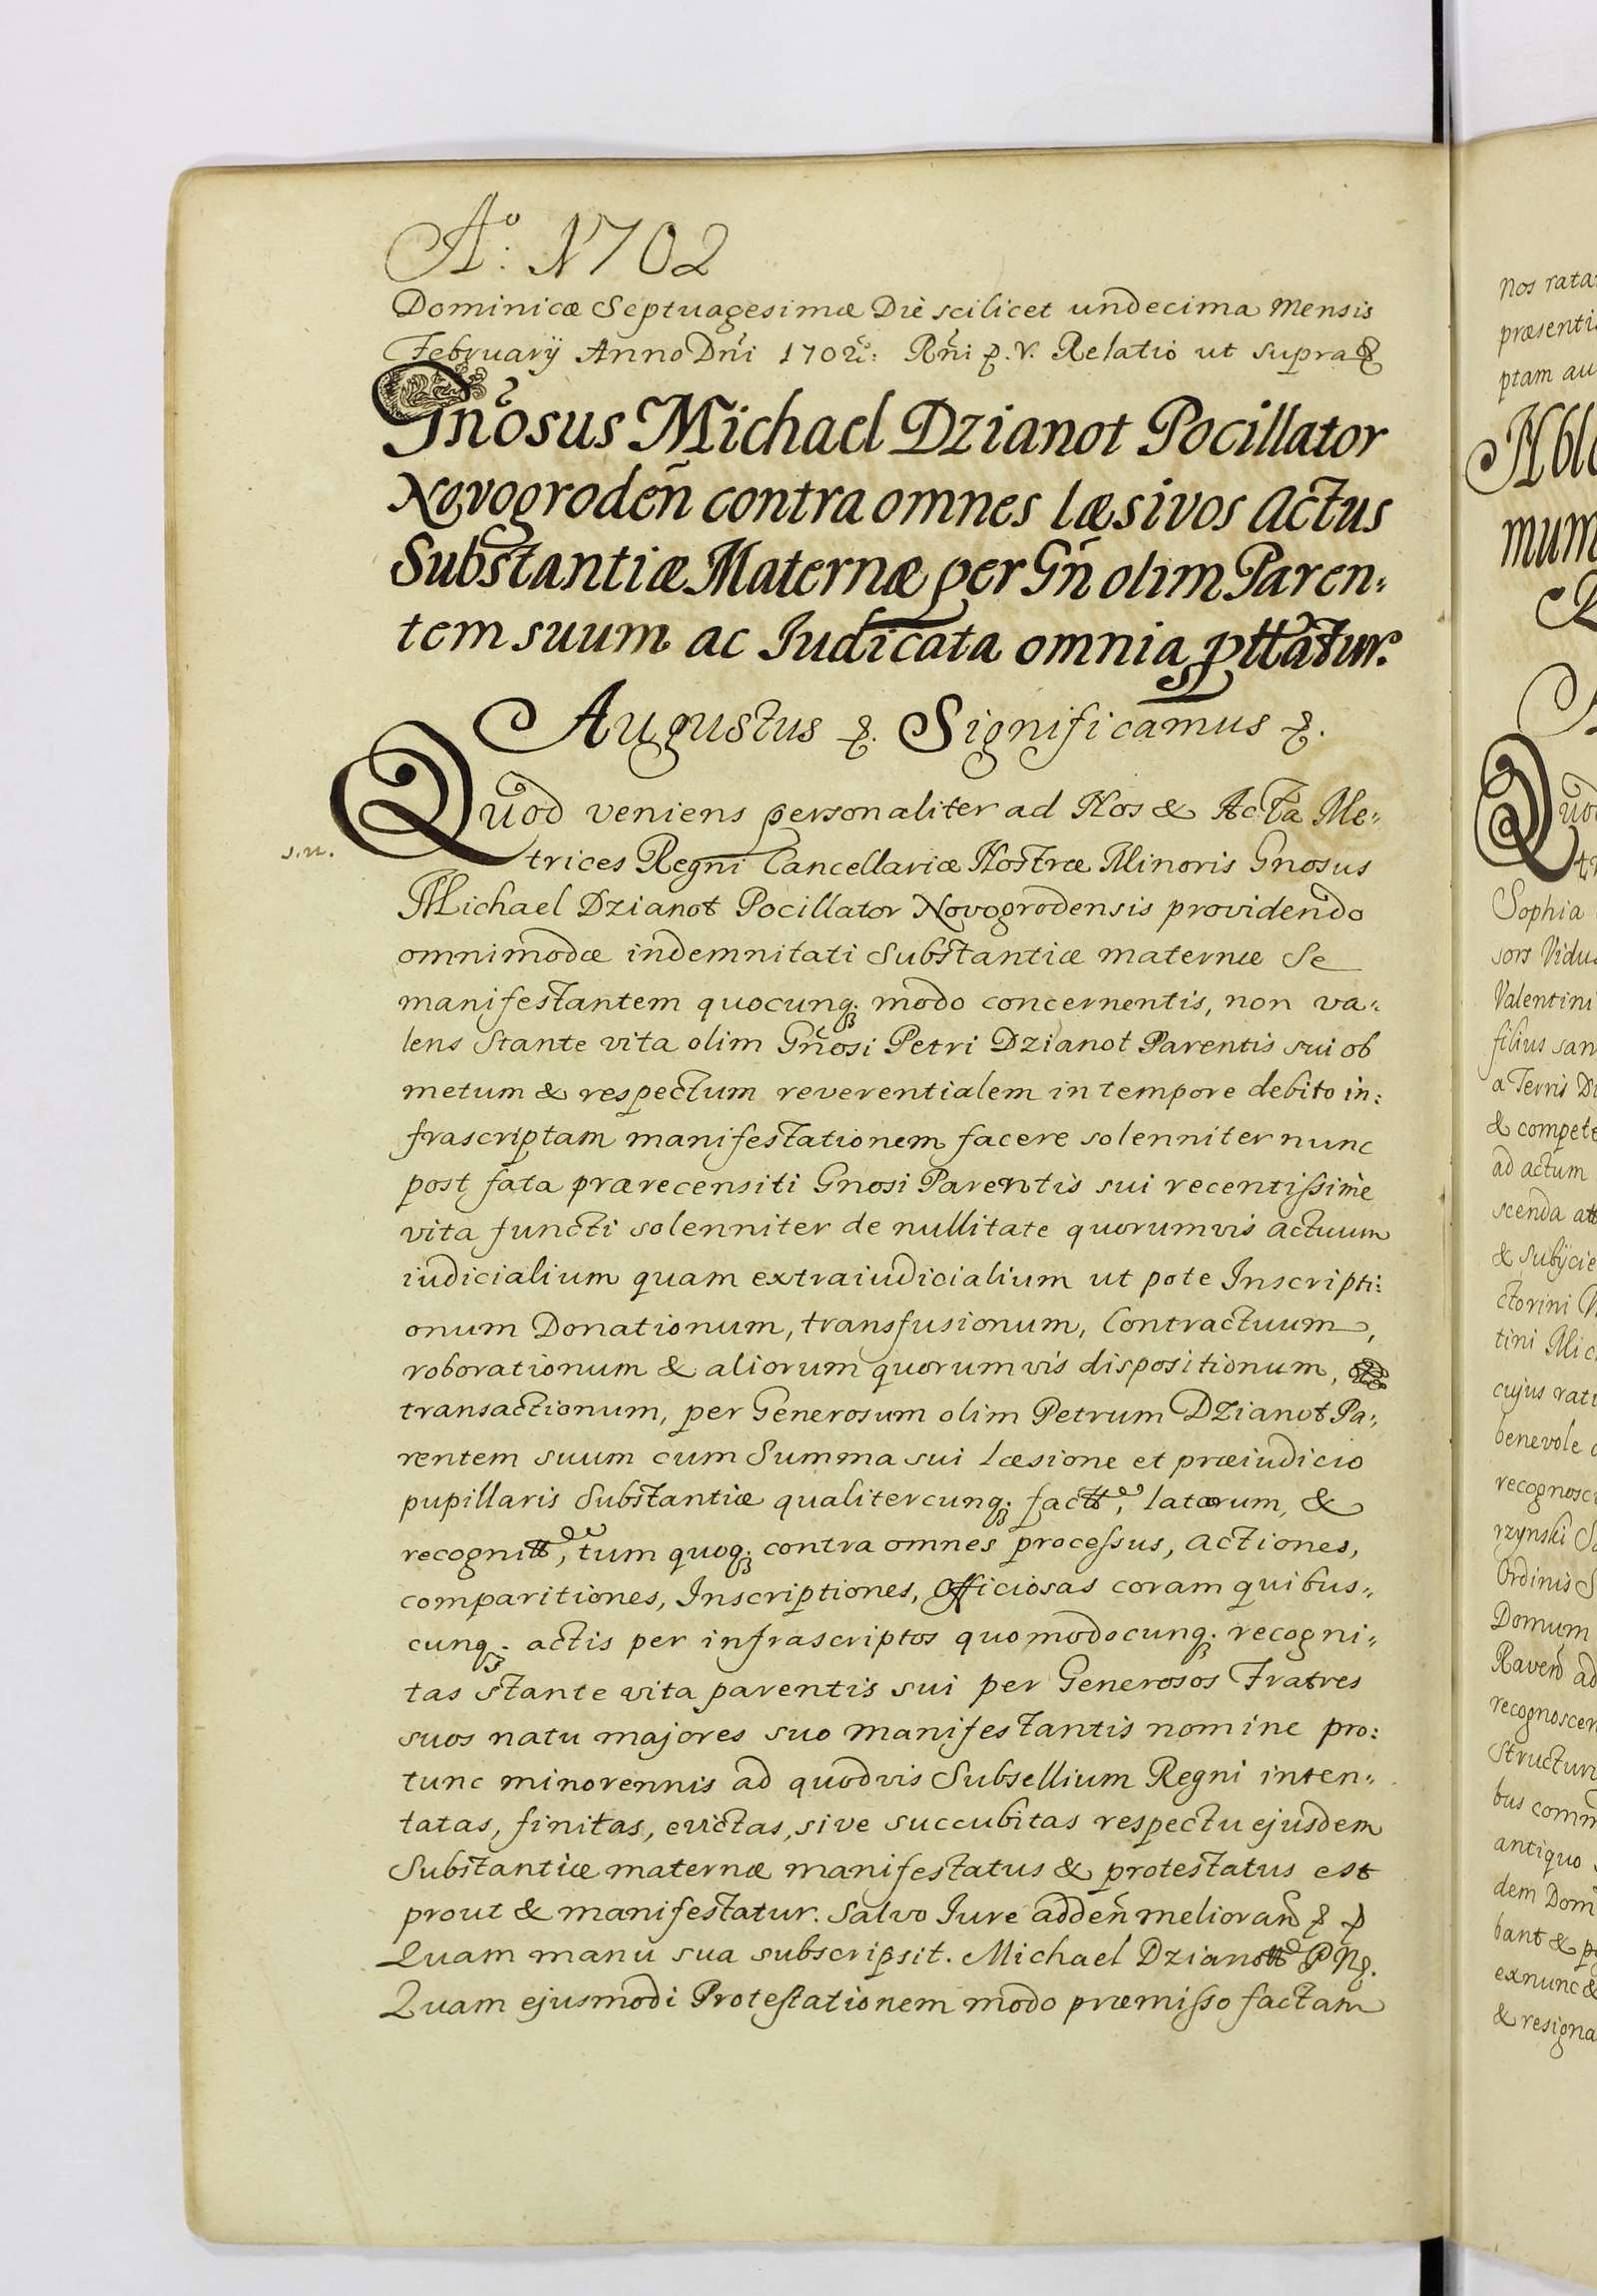 Aº: 1702
Dominicæ Septuagesimæ Die scilicet undecima Mensis
February Anno Dñi 1702º: Rñi p. V. Relatio ut supra &
Gnosus Michael Dzianot Pocillator
Novogrodeñ contra omnes læsivos Actus
Substantiæ Maternæ per Gñ olim Paren-
tem suum ac Judicata omnia pttatur.
Augustus &. Significamus &.
Quod veniens personaliter ad Nos & Acta Me-
s.n.
trices Regni Cancellariæ Nostræ Minoris Gnosus
Michael Dzianot Pocillator Novogrodensis providendo
omnimodæ indemnitati Substantiæ maternæ Se
manifestantem quocunq; modo concernentis, non va-
lens Stante vita olim Gñosi Petri Dzianot Parentis sui ob
metum & respectum reverentialem in tempore debito in:
frascriptam manifestationem facere solenniter nunc
post fata prærecensiti Gnosi Parentis sui recentissime
vita functi solenniter de nullitate quorumvis actuum
iudicialium quam extraiudicialium ut pote Inscripti:
onum Donationum, transfusionum, Contractuum,
roborationum & aliorum quorumvis dispositionum,
transactionum, per Generosum olim Petrum Dzianot Pa-
rentem suum cum Summa sui læsione et præiudicio
pupillaris Substantiæ qualitercunq; factt, latorum, &
recognitt, tum quoq; contra omnes processus, actiones,
comparitiones, Inscriptiones, Officiosas coram quibus-
cunq; actis per infrascriptos quomodocunq; recogni-
tas stante vita parentis sui per Generosos Fratres
suos natu majores suo manifestantis nomine pro:
tunc minorennis ad quodvis Subsellium Regni inten-
tatas, finitas, evictas, sive succubitas respectu ejusdem
Substantiæ maternæ manifestatus & protestatus est
prout & manifestatur. Salvo Jure addeñ meliorañ &
Quam manu sua subscripsit. Michael Dzianott P N.
Quam ejusmodi Protestationem modo præmisso factam
nos rata
præsenti
ptam au
mum
Quod
Sophia
sors Vidu
Valentini
filius san
a Terris D
& compet
ad actum
scenda
& subijcie
ctorini
tini Mic
cujus rat
benevole
recognosc
rzynski S
Ordinis S
Domum
Raven ad
recognoscen
Structur
bus comm
antiquo
dem Dom
bant & p
exnunc &
& resigna